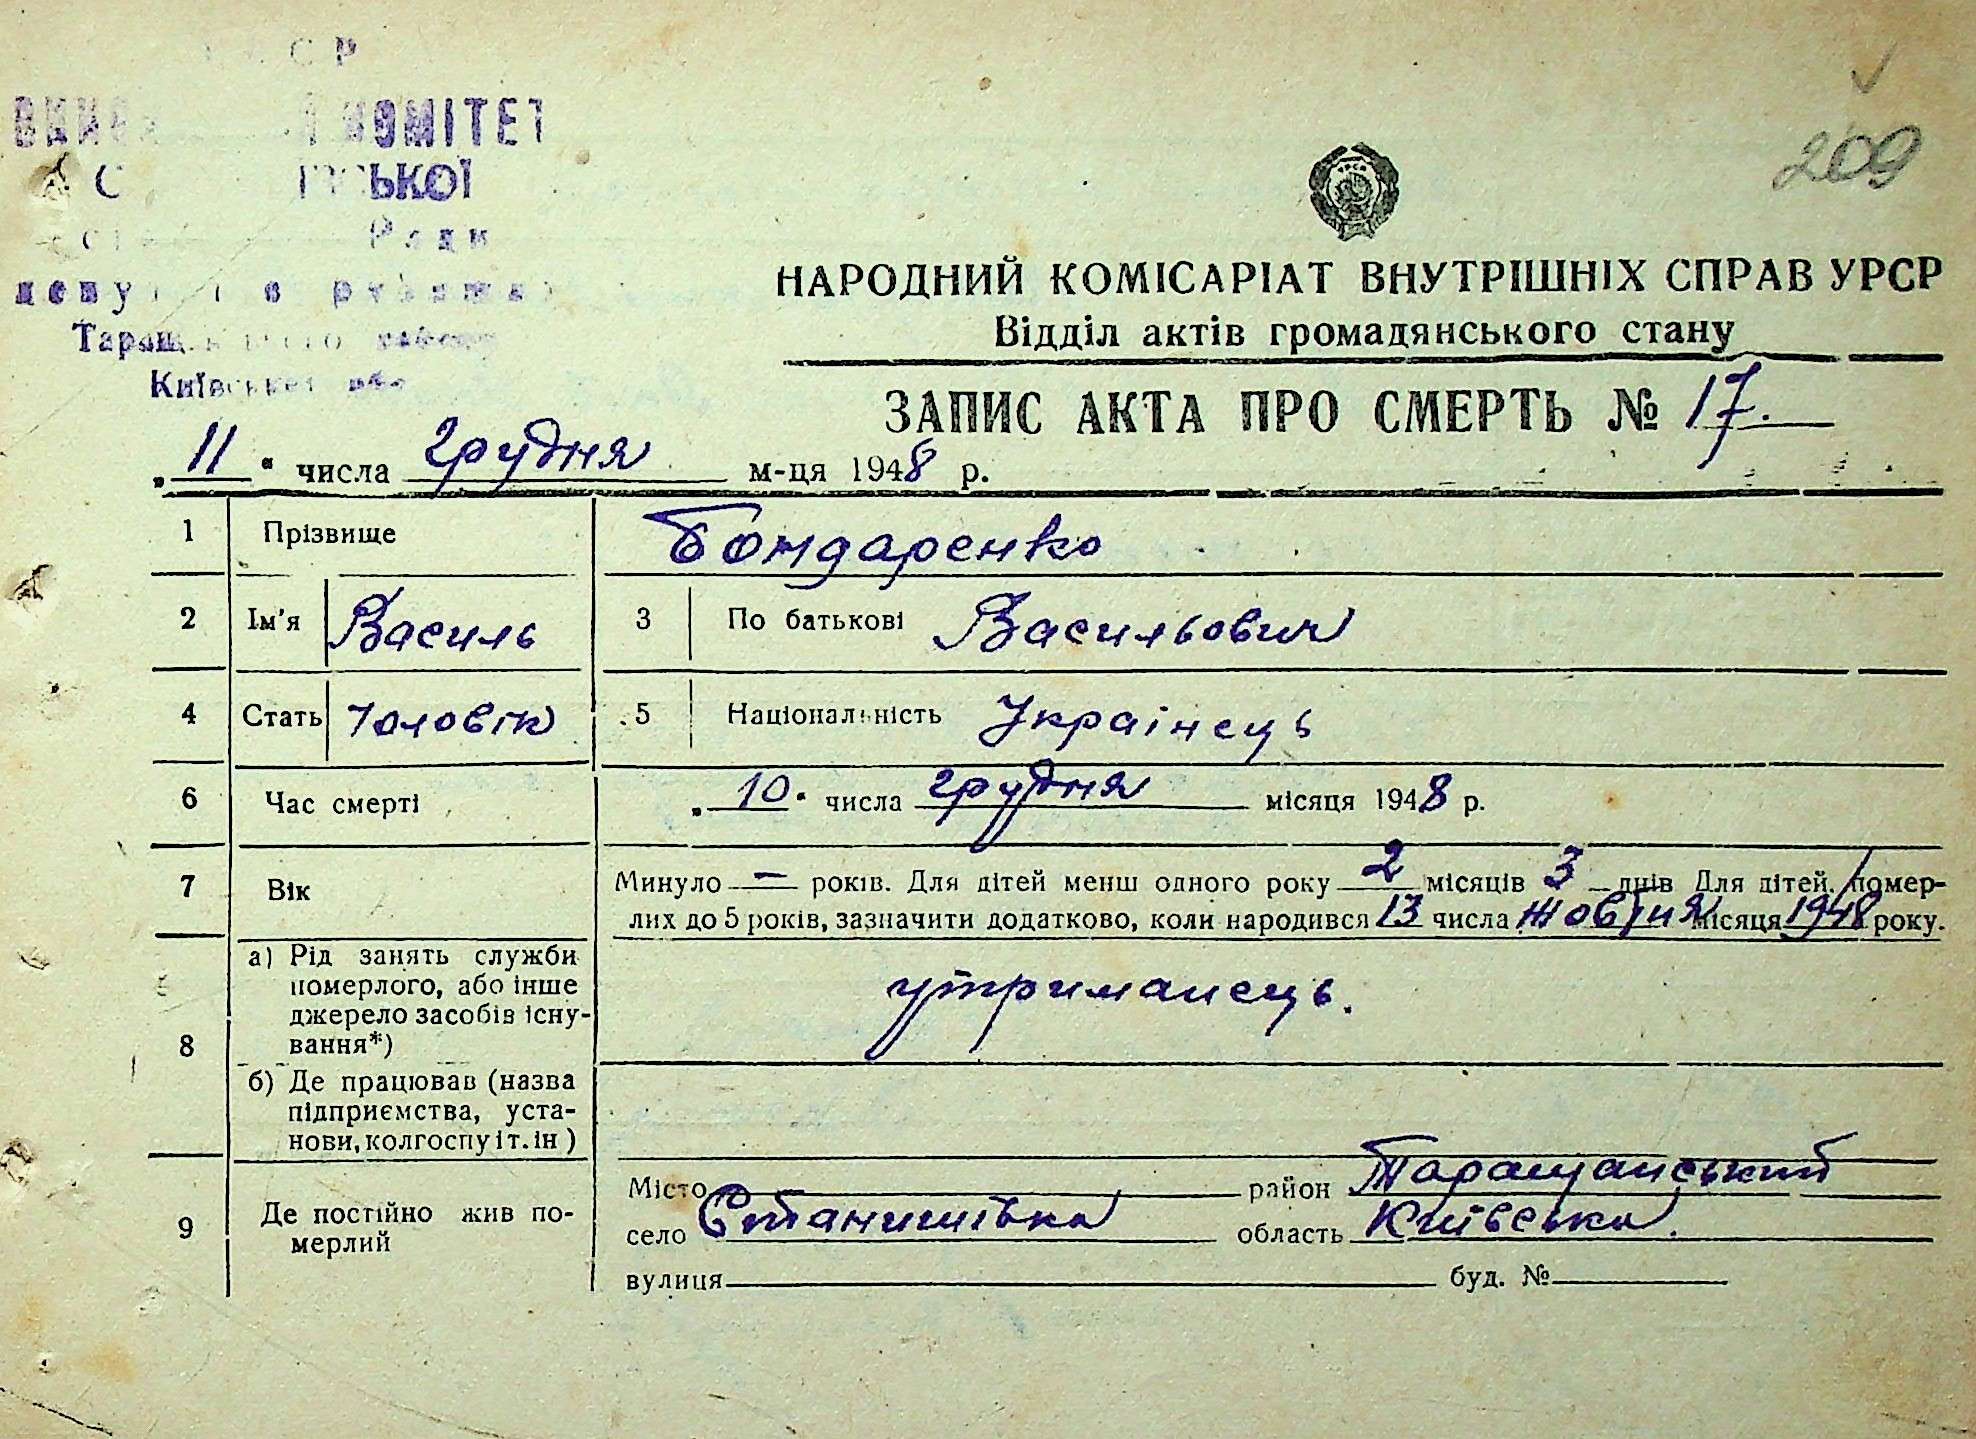 КОМІТЕТ
ЬКОЇ
Ради
Таращ
Київської обл
209
НАРОДНИЙ КОМІСАРІАТ ВНУТРІШНІХ СПРАВ УРСР
Відділ актів громадянського стану
ЗАПИС АКТА ПРО СМЕРТЬ № 17.
„11" числа грудня м-ця 1948 р.
1 Прізвище Бондаренко
2 Ім'я Василь 3 По батькові Васильович
4 Стать Чоловік 5 Національність Українець
6 Час смерті „10" числа грудня місяця 1948 р.
7 Вік Минуло — років. Для дітей менш одного року 2 місяців 3 днів Для дітей, помер-
лих до 5 років, зазначити додатково, коли народився 13 числа Жовтня місяця 1948 року.
8 а) Рід занять служби
померлого, або інше
джерело засобів існу-
вання*) утриманець.
б) Де працював (назва
підприємства, уста-
нови, колгоспу і т. ін)
9 Де постійно жив по-
мерлий
Місто район Таращанський
село Станишівка область Київська.
вулиця буд. №